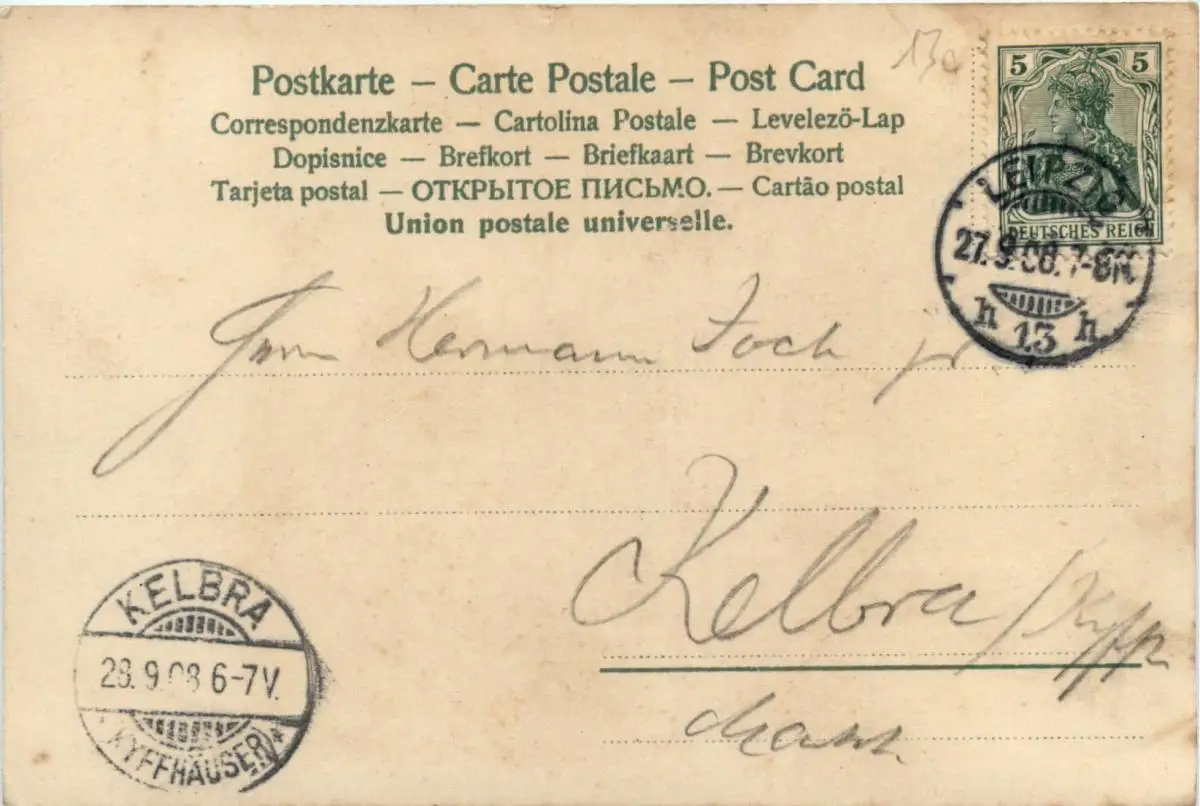 130
Postkarte – Carte Postale – Post Card
Correspondenzkarte — Cartolina Postale — Levelezö-Lap
Dopisnice — Brefkort — Briefkaart — Brevkort
Tarjeta postal — ОТКРЫТОЕ ПИСЬМО. — Cartão postal
Union postale universelle.
5 5
DEUTSCHES REICH
LEIPZIG
27.9.08.7-8N.
h 13 h
Hermann
Kelbra / Kyffh
KELBRA
28.9.08 6-7V.
(KYFFHÄUSER) *